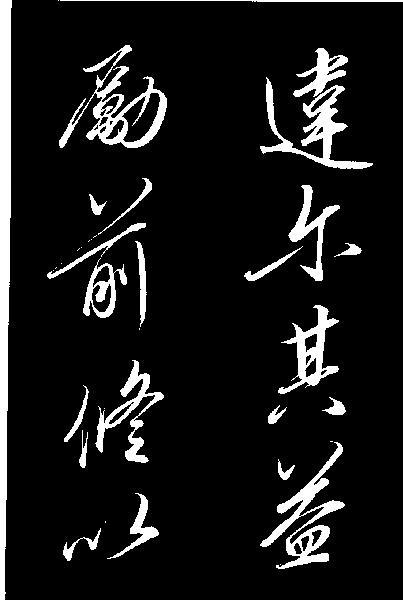 違尔其益
勵前修以